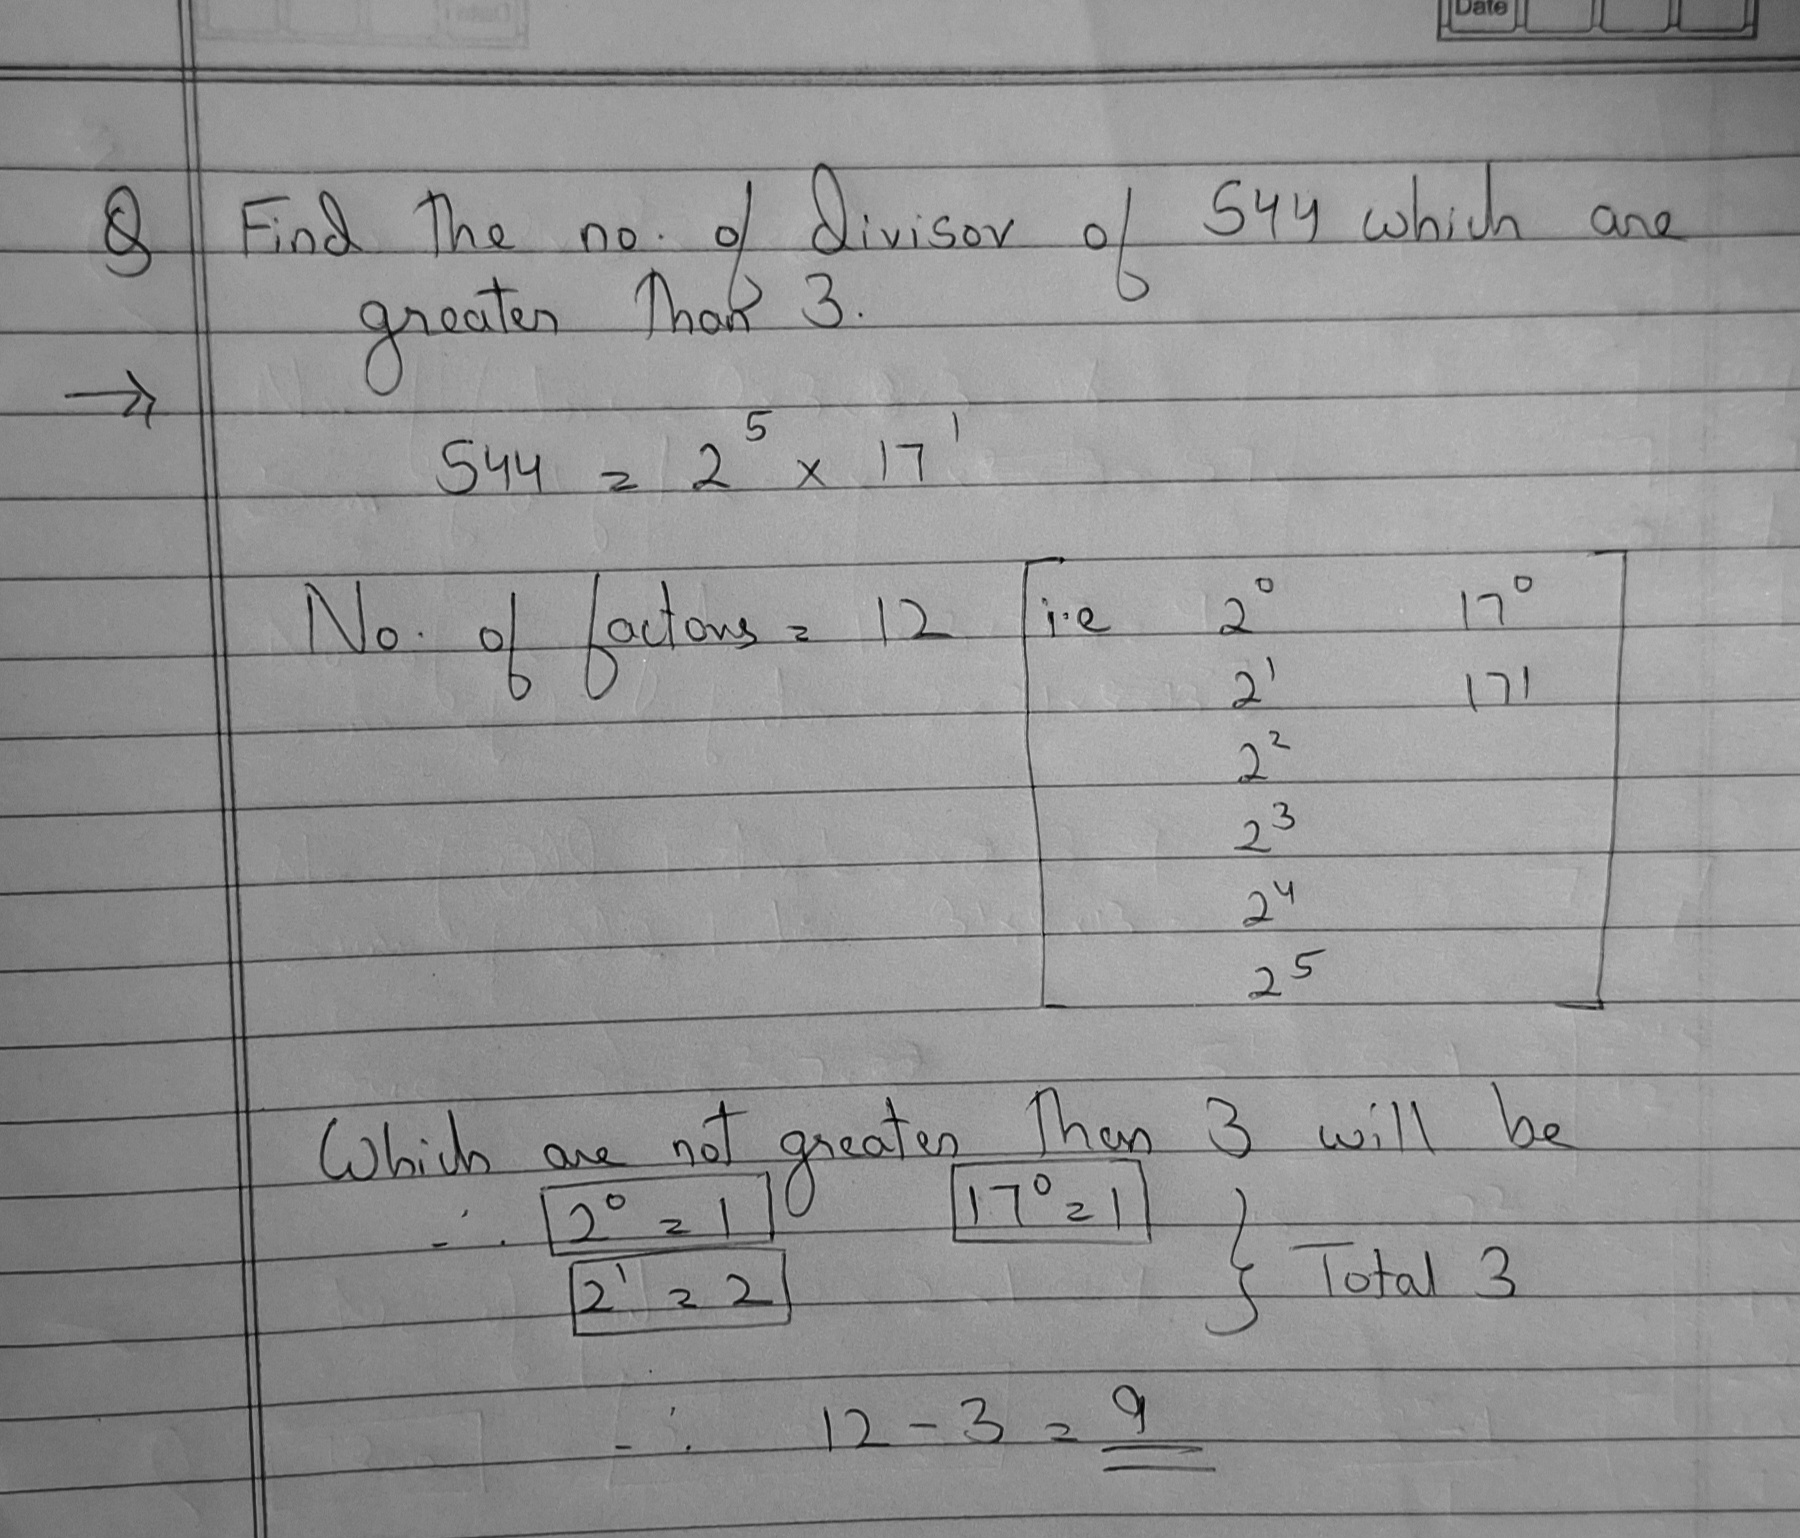 Date
Q Find the no. of divisor of 544 which are
greater than 3.
→
544 = 2⁵ × 17¹
No. of factors = 12 [i.e 2⁰ 17⁰
2¹ 17¹
2²
2³
2⁴
2⁵]
Which are not greater than 3 will be
∴ 2⁰ = 1 17⁰ = 1
2¹ = 2 } Total 3
∴ 12 - 3 = 9